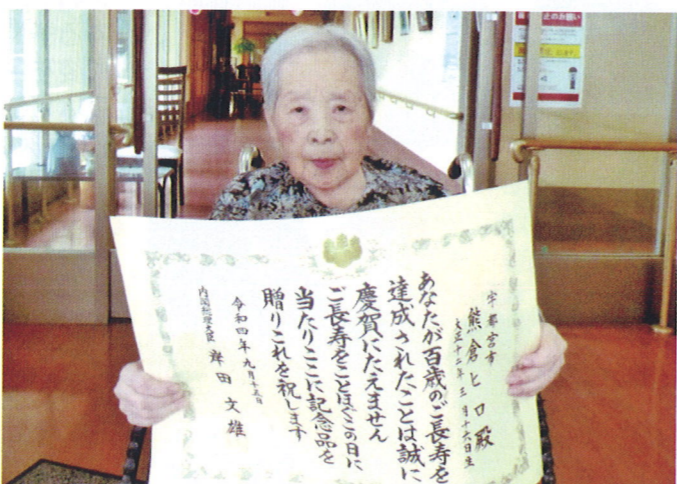 宇都宮市
熊倉ヒロ殿
大正十二年三月十六日生
あなたが百歳のご長寿を
達成されたことは誠に
慶賀にたえません
ご長寿をことほぐこの日に
当たりここに記念品を
贈りこれを祝します
令和四年九月十五日
内閣総理大臣 岸田文雄
のお願い